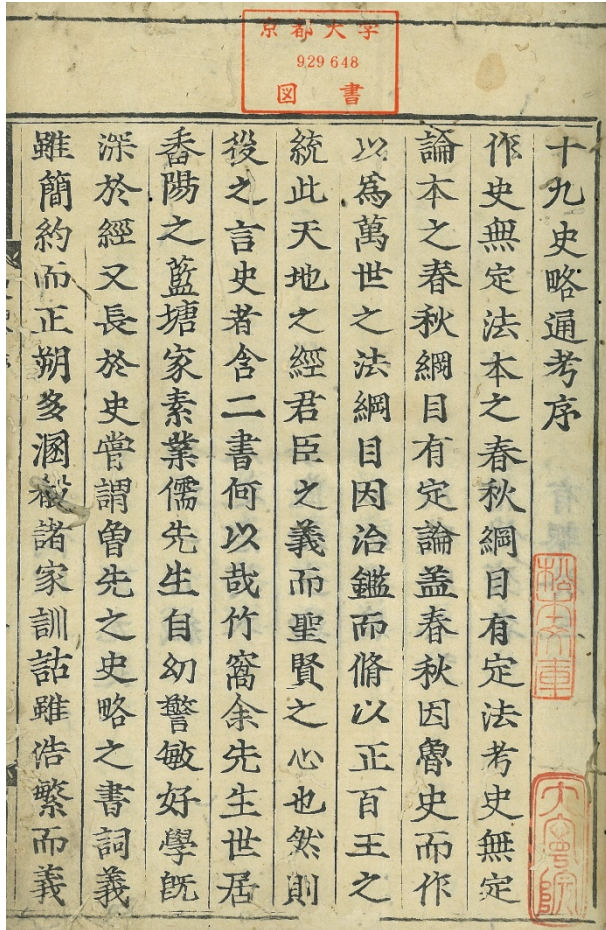 京都大学
929648
図書
十九史略通考序
作史無定法本之春秋綱目有定法考史無定
論本之春秋綱目有定論盖春秋因魯史而作
以爲萬世之法綱目因治鑑而脩以正百王之
統此天地之經君臣之義而聖賢之心也然則
後之言史者含二書何以哉竹窩余先生世居
番陽之藍塘家素業儒先生自幼警敏好學既
深於經又長於史甞謂曽先之史略之書詞義
雖簡約而正朔多溷殽諸家訓詁雖浩繁而義